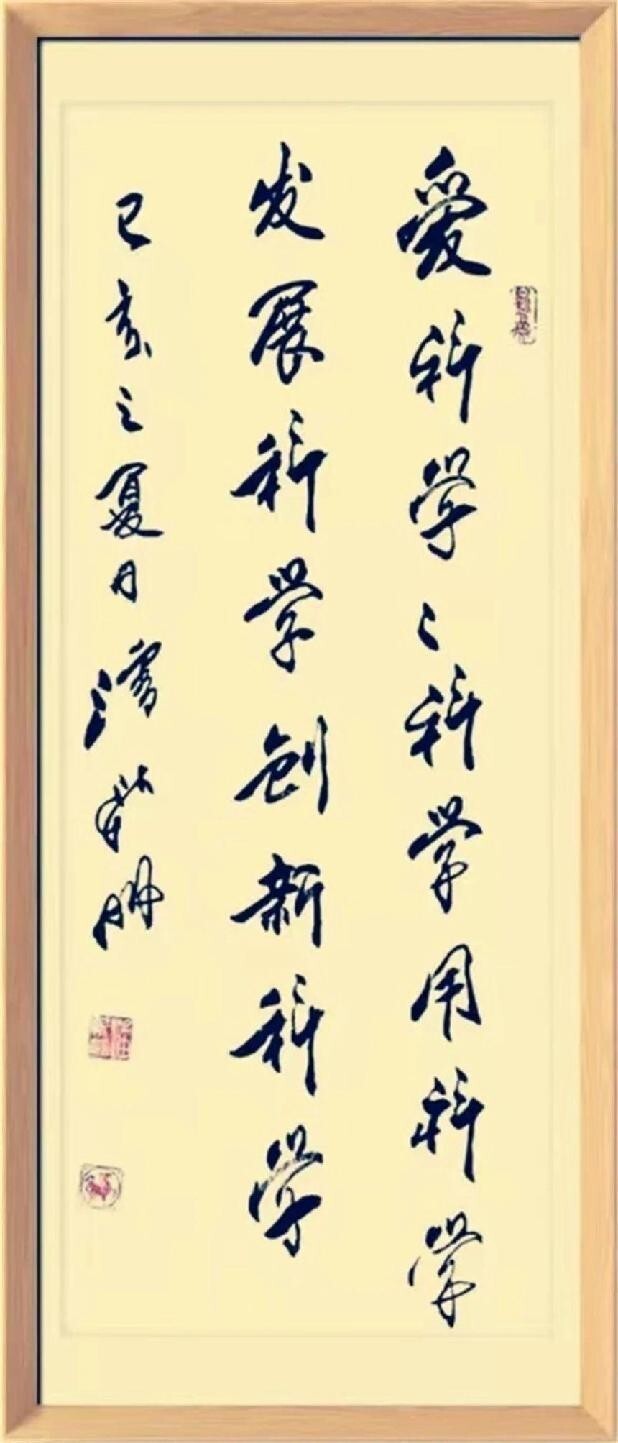 爱科学々科学用科学
发展科学创新科学
己亥之夏月